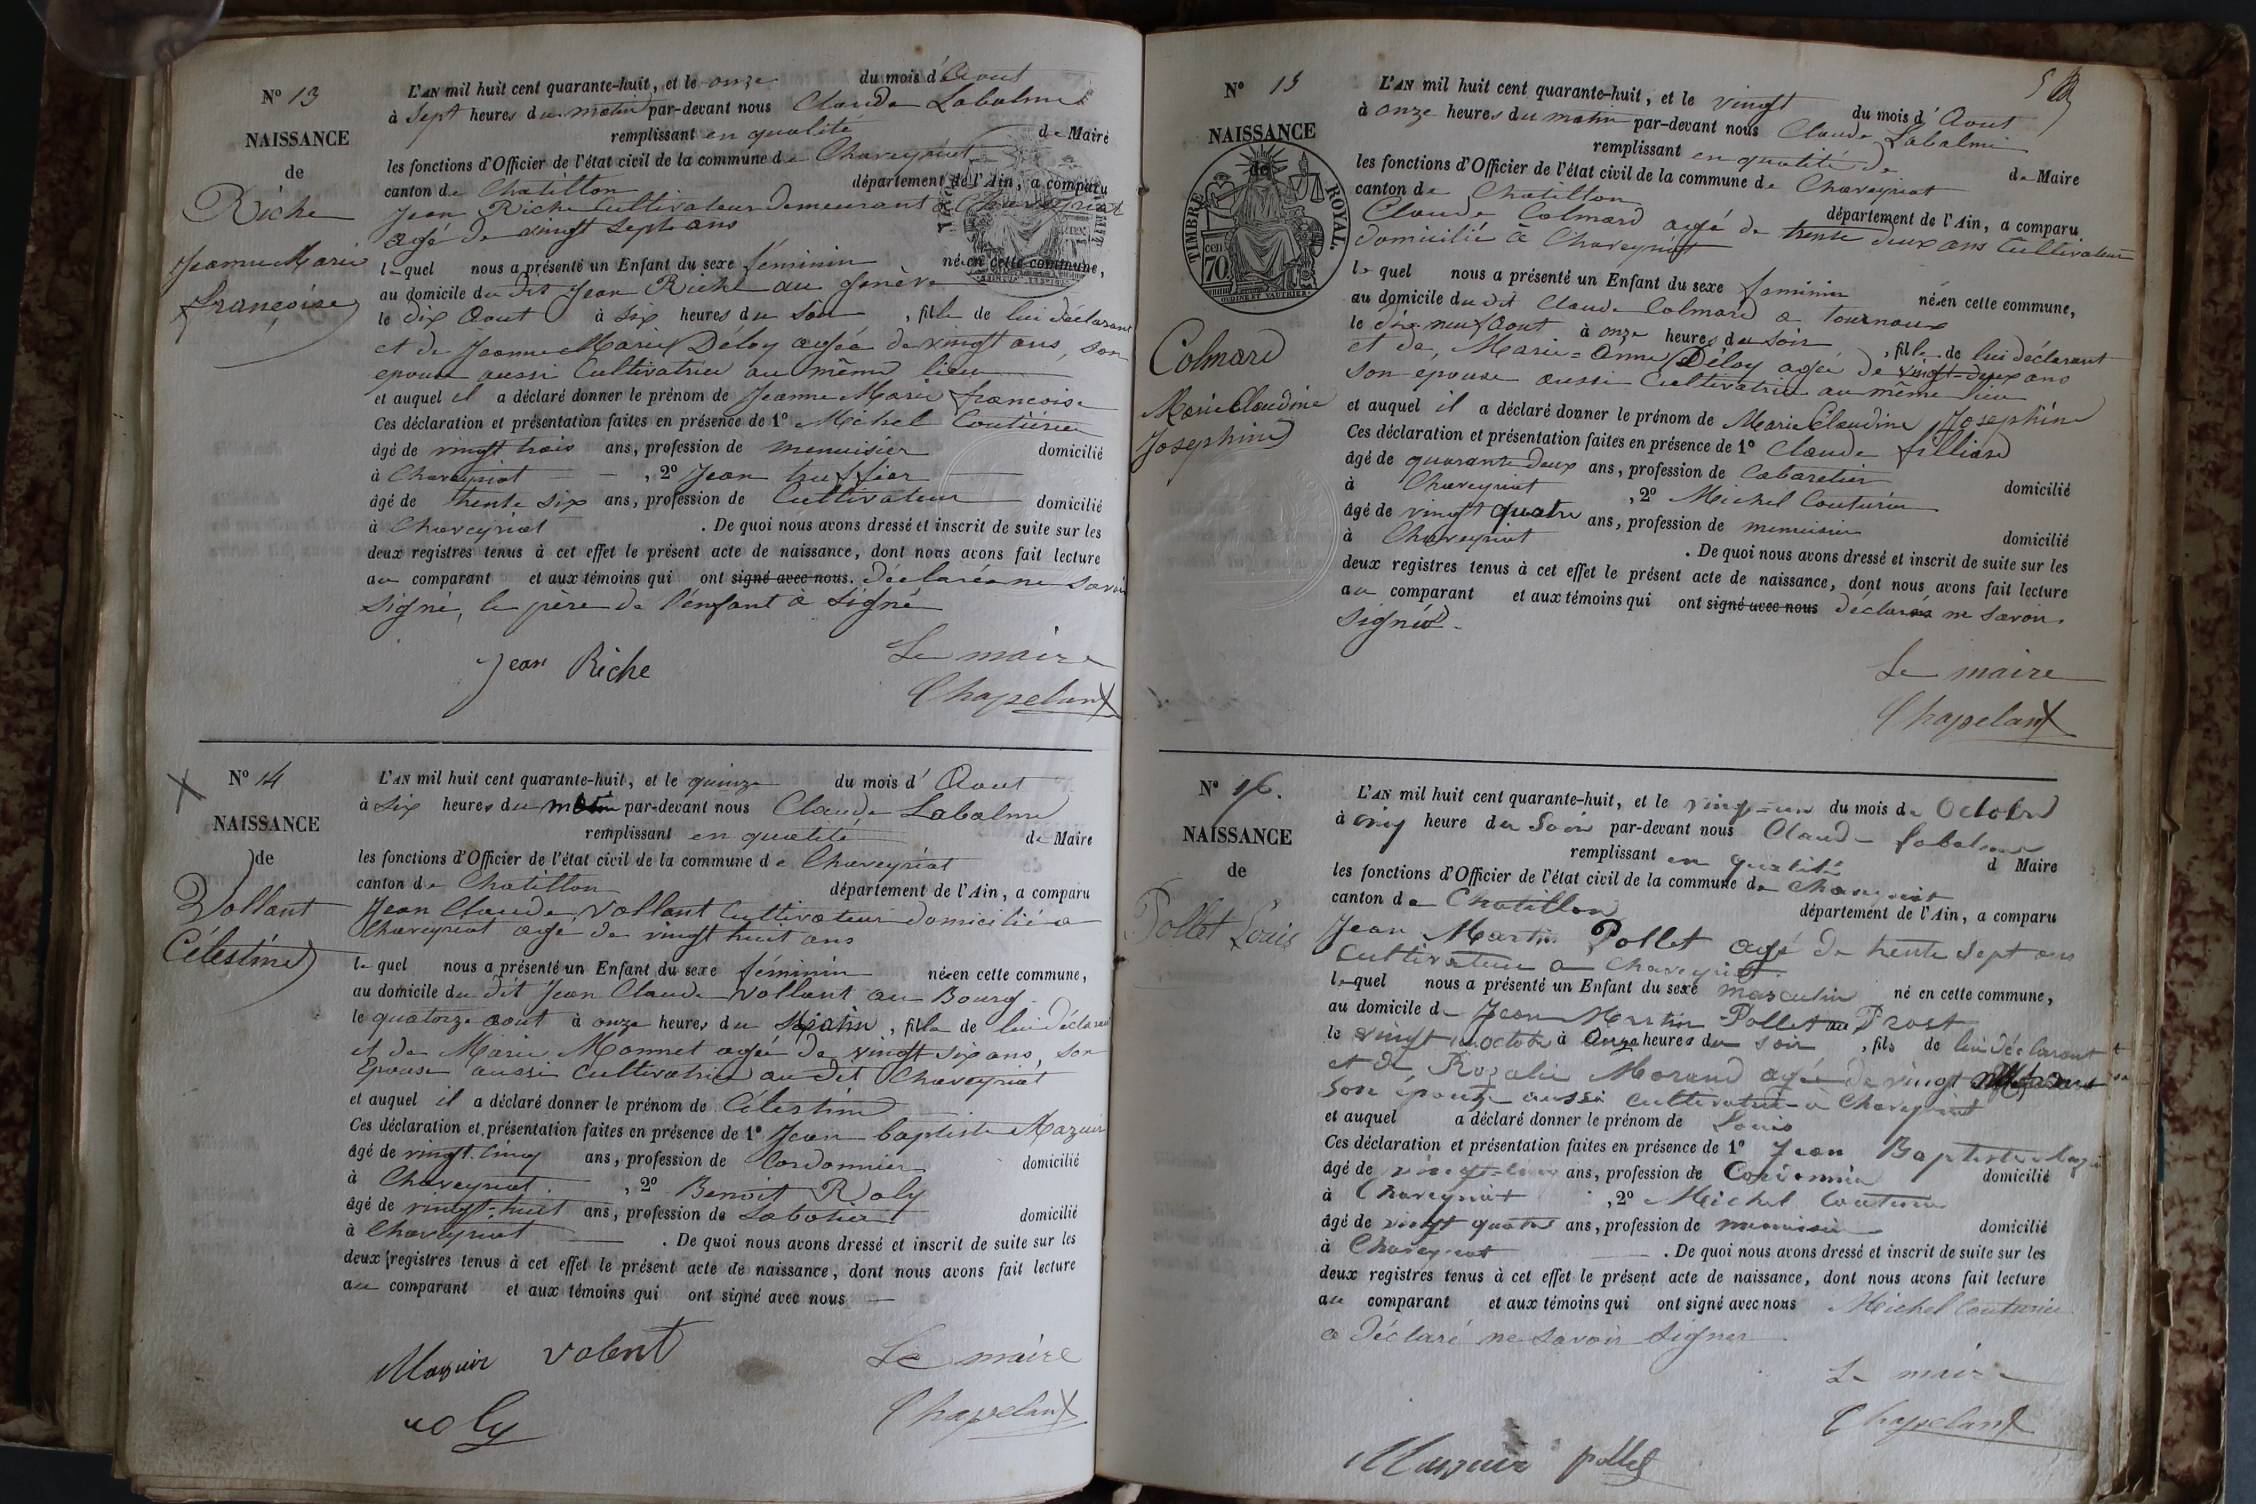 N° 13
NAISSANCE
de
Riche
Jeanne Marie
françoise
L'AN mil huit cent quarante-huit, et le onze du mois d'Aout
à Sept heures du matin par-devant nous Claude Labalme
remplissant en qualité de Maire
les fonctions d'Officier de l'état civil de la commune de Chaveyriat
canton de Chatillon département de l'Ain, a comparu
Jean Riche Cultivateur demeurant à Chaveyriat
agé de vingt sept ans
lequel nous a présenté un Enfant du sexe féminin née en cette commune,
au domicile du dit Jean Riche au Genève
le dix Aout à six heures du Soir, fille de lui déclarant
et de Jeanne Marie Déloy agée de vingt ans, son
epouse aussi Cultivatrice au même lieu
et auquel il a déclaré donner le prénom de Jeanne Marie françoise
Ces déclaration et présentation faites en présence de 1° Michel Couturier
âgé de vingt trois ans, profession de menuisier domicilié
à Chaveyriat, 2° Jean truffier
âgé de trente six ans, profession de Cultivateur domicilié
à Chaveyriat. De quoi nous avons dressé et inscrit de suite sur les
deux registres tenus à cet effet le présent acte de naissance, dont nous avons fait lecture
au comparant et aux témoins qui ont signé avec nous. déclarés ne savoir
signé, le père de l'enfant à signé
Jean Riche
Le maire
Chapelant
N° 14
NAISSANCE
de
Vollant
Célestine
L'AN mil huit cent quarante-huit, et le quinze du mois d'Aout
à six heures du matin par-devant nous Claude Labalme
remplissant en qualité de Maire
les fonctions d'Officier de l'état civil de la commune de Chaveyriat
canton de Chatillon département de l'Ain, a comparu
Jean Claude Vollant Cultivateur domicilié a
Chaveyriat age de vingt huit ans
lequel nous a présenté un Enfant du sexe féminin née en cette commune,
au domicile du dit Jean Claude Vollant au Bourg
le quatorze aout à onze heures du matin, fille de lui déclarant
et de Marie Monnet agée de vingt six ans, son
Epouse aussi Cultivatrice au dit Chaveyriat
et auquel il a déclaré donner le prénom de Célestine
Ces déclaration et présentation faites en présence de 1° Jean baptiste Mazuir
âgé de vingt cinq ans, profession de Cordonnier domicilié
à Chaveyriat, 2° Benoit Roly
âgé de vingt-huit ans, profession de Sabotier domicilié
à Chaveyriat. De quoi nous avons dressé et inscrit de suite sur les
deux registres tenus à cet effet le présent acte de naissance, dont nous avons fait lecture
au comparant et aux témoins qui ont signé avec nous
Mazuir volent
Le maire
Chapelant
N° 15
NAISSANCE
de
TIMBRE ROYAL.
cen 70
OUDINE ET VAUTHIER
Colmard
Marie Claudine
Josephine
L'AN mil huit cent quarante-huit, et le vingt du mois d'Aout
à onze heures du matin par-devant nous Claude Labalme
remplissant en qualité de Maire
les fonctions d'Officier de l'état civil de la commune de Chaveyriat
canton de Chatillon département de l'Ain, a comparu
Claude Colmard agé de trente deux ans Cultivateur
domicilié à Chaveyriat
lequel nous a présenté un Enfant du sexe feminin née en cette commune,
au domicile du dit Claude Colmard a tournoux
le dix neuf Aout à onze heures du Soir, fille de lui déclarant
et de, Marie-Anne Déloy agée de vingt-deux ans
son epouse aussi Cultivatrice au même lieu
et auquel il a déclaré donner le prénom de Marie Claudine Josephine
Ces déclaration et présentation faites en présence de 1° Claude filliard
âgé de quarante deux ans, profession de Cabaretier domicilié
à Chaveyriat, 2° Michel Couturier
âgé de vingt quatre ans, profession de menuisier domicilié
à Chaveyriat. De quoi nous avons dressé et inscrit de suite sur les
deux registres tenus à cet effet le présent acte de naissance, dont nous avons fait lecture
au comparant et aux témoins qui ont signé avec nous déclarés ne savoir
signer.
Le maire
Chapelant
N° 16.
NAISSANCE
de
Pollet Louis
L'AN mil huit cent quarante-huit, et le vingt-un du mois de Octobre
à cinq heure du Soir par-devant nous Claude Labalme
remplissant en qualité d Maire
les fonctions d'Officier de l'état civil de la commune de Chaveyriat
canton de Chatillon département de l'Ain, a comparu
Jean Martin Pollet agé de trente sept ans
Cultivateur a Chaveyriat
lequel nous a présenté un Enfant du sexe masculin né en cette commune,
au domicile de Jean Martin Pollet au Prost
le vingt octobre à Onze heures du soir, fils de lui déclarant
et de Rozalie Morand agée de vingt
son épouse aussi cultivatrice à Chaveyriat
et auquel a déclaré donner le prénom de Louis
Ces déclaration et présentation faites en présence de 1° Jean Baptiste Mazuir
âgé de vingt-cinq ans, profession de Cordonnier domicilié
à Chaveyriat, 2° Michel Couturier
âgé de vingt quatre ans, profession de menuisier domicilié
à Chaveyriat. De quoi nous avons dressé et inscrit de suite sur les
deux registres tenus à cet effet le présent acte de naissance, dont nous avons fait lecture
au comparant et aux témoins qui ont signé avec nous Michel Couturier
a déclaré ne savoir signer
Le maire
Chapelant
Mazuir pollet